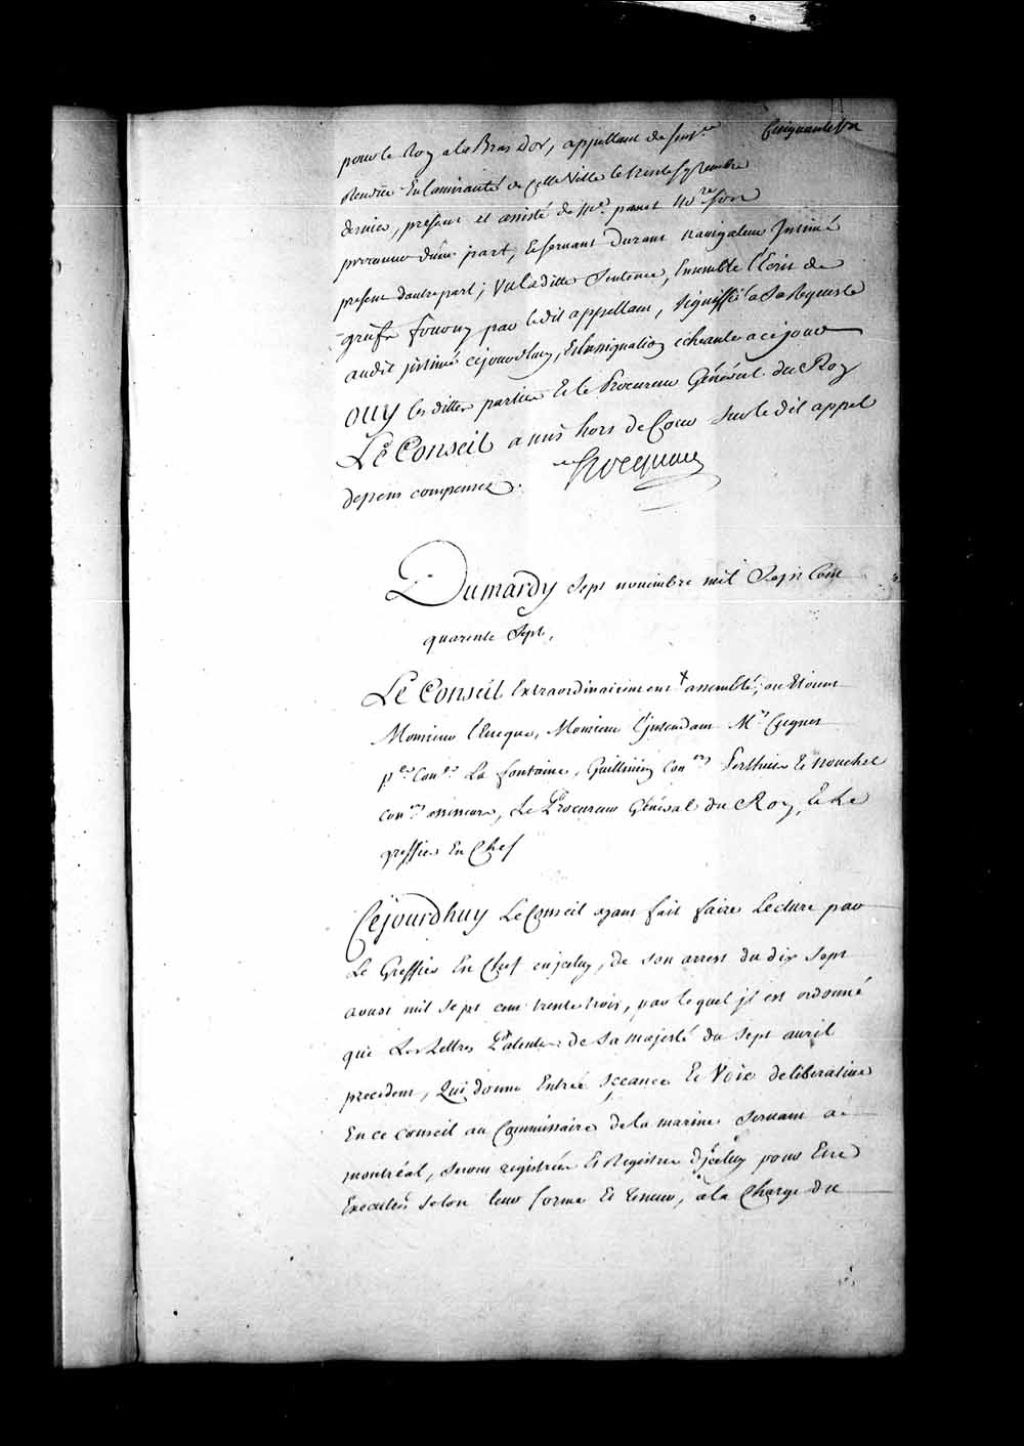 Cinquante Un
pour le Roy a la Bras dor, appellant de Sent.ce
Rendüe En Lamirauté de Cette Ville le trente Septembre
dernier, present et assisté de M.e panet No.re son
procureur dune part, Le fernant Durant navigateur Intimé
present dautre part; Vu la ditte Sentence, Ensemble l'Ecrit de
griefs fourny par le dit appellant, signiffié a sa Requeste
audit jntimé cejourdhuy, Et lassignation écheante a ce jour
OUY les dittes parties Et le Procureur Général du Roy
Le Conseil a mis hors de Cour sur le dit appel
depens compensez. Hocquart
Du mardy Sept novembre mil Sept Cent
quarente Sept,
Le Conseil Extraordinairement + assemblé, ou Etoient
Monsieur l'Eveque, Monsieur l'jntendant M.rs Cugnet
p.er Con.er La fontaine, Guillimin Con.ers Perthuis Et nouchet
Con.ers assesseurs, Le Procureur Général du Roy, Et Le
greffier En Chef
Cejourdhuy Le Conseil ayant fait faire Lecture par
Le Greffier En Chef en jceluy, de son arrest du dix Sept
aoust mil Sept cent trente trois, par lequel jl est ordonné
que Les Lettres Patentes de Sa majesté du Sept avril
precedent, Qui donne Entrée, sceance Et Voix deliberative
En ce conseil au Commissaire de la marine servant a
montréal, seront registrées Es Registres d'jceluy pour Etre
Executées selon leur forme Et teneur, a la Charge de